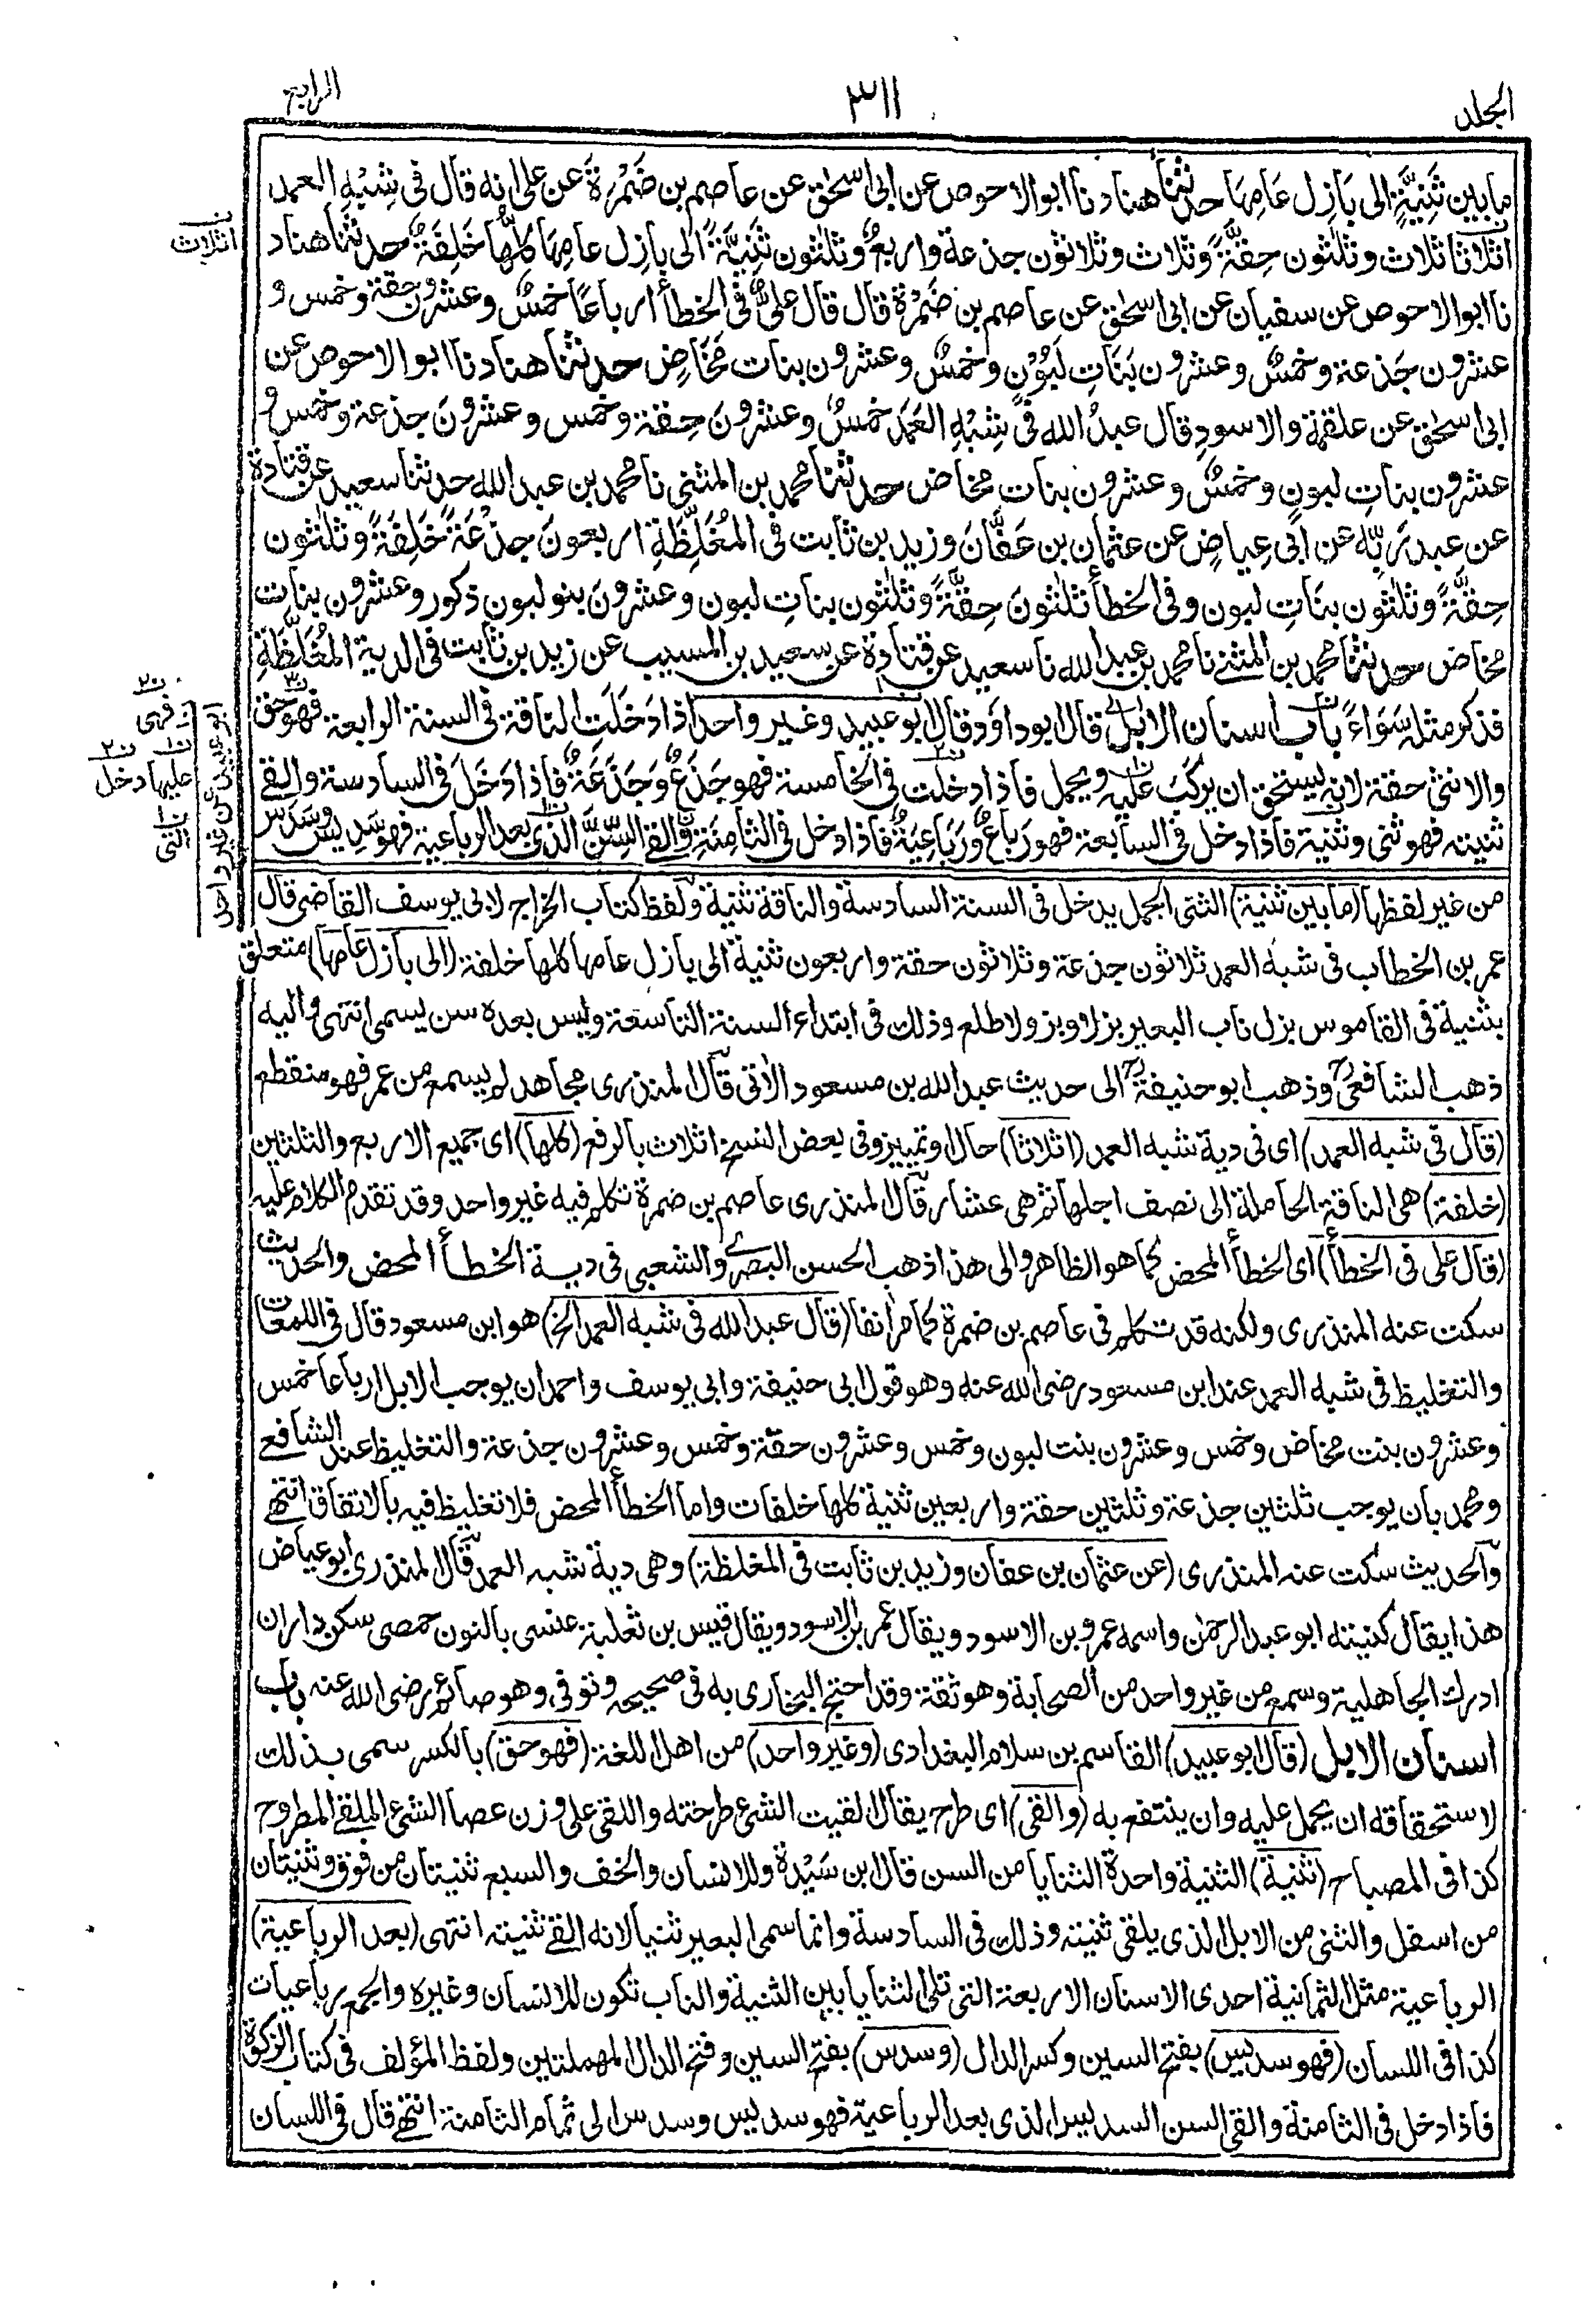 الجلد
٣١١
الرابع
ما بين ثَنِيَّةٍ الى بَازِل عَامِهَا حدثنا هناد نا ابو الاحوص عن ابى اسحٰق عن عاصم بن ضَمْرة عن على انه قال فى شِبْهِ العمد
اثلاثا ثلاث وثلٰثون حِقَّةً وثلاث وثلاثون جذعة واربعٌ وثلٰثون ثَنِيَّةً الى بازِل عامِهَا كلُّها خَلِفَةٌ حدثنا هناد
نا ابو الاحوص عن سفيان عن ابى اسحٰق عن عاصم بن ضَمْرة قال قال علىٌّ فى الخطأ ارباعًا خمسٌ وعشرون حقة وخمس و
عشرون جَذعة وخمسٌ وعشرون بَنَاتِ لَبُوْنٍ وخمسٌ وعشرون بنات مَخَاضٍ حدثنا هناد نا ابو الاحوص عن
ابى اسحٰق عن علقمة والاسودِ قال عبدُ الله فى شِبْهِ العَمَد خمسٌ وعشرونَ حِقة وخمس وعشرونَ جذعة وخمس و
عشرون بناتِ لبونٍ وخمسٌ وعشرون بنات مخاض حدثنا محمد بن المثنى نا محمد بن عبد الله حدثنا سعيد عن قتادة
عن عبد رَبِّه عن ابى عِياضٍ عن عثمان بن عَفَّانَ وزيد بن ثابت فى المُغَلَّظَةِ اربعونَ جذْعَةً خَلِفَةً وثلٰثون
حِقَّةً وثلٰثون بنَاتِ لبون وفى الخطأ ثلٰثونَ حِقَّةً وثلٰثون بناتِ لبون وعشرونَ بنو لبون ذكور وعشرون بنات
مخاض حدثنا محمد بن المثنے نا محمد بن عبد الله نا سعيد عن قتادة عن سعيد بن المسيب عن زيد بن ثابت فى الدية المُغَلَّظَةِ
فذكر مثله سَوَاءً باب اسنان الابل قال ابو داؤد قال ابو عبيد وغير واحد اذا دَخَلَت الناقة فى السنة الرابعة فهو حق
والانثى حقة لانه يستحق ان يركَبَ عليه ويحمل فاذا دخلت فى الخامسة فهو جَذَعٌ وَجَذَعَةٌ فاذا دَخَلَ فى السادسة والقے
ثنيته فهو ثنى وثنية فاذا دخل فى السابعة فهو رَبَاعٌ ورَبَاعِيَةٌ فاذا دخل فى الثامِنَةِ والقے السِّنَّ الذى بعد الرباعية فهو سَدِيس وسَدَس
اثلاث
فهى
عليها دخل
التى
من غير لفظها (ما بين ثنية) الثنى الجمل يدخل فى السنة السادسة والناقة ثنية ولفظ كتاب الخراج لابى يوسف القاضى قال
عمر بن الخطاب فى شبه العمد ثلاثون جذعة وثلاثون حقة واربعون ثنية الى بازل عامها كلها خلفة (الى بازل عامها) متعلق
بثنية فى القاموس بزل ناب البعير بزلا وبزولا طلع وذلك فى ابتداء السنة التاسعة وليس بعده سن يسمى انتهى واليه
ذهب الشافعى وذهب ابو حنيفة الى حديث عبد الله بن مسعود الاٰتى قال المنذرى مجاهد لم يسمع من عمر فهو منقطع
(قال فى شبه العمد) اى فى دية شبه العمد (اثلاثا) حال وتمييز وفى بعض النسخ اثلاث بالرفع (كلها) اى جميع الاربع والثلثين
(خلفة) هى الناقة الحاملة الى نصف اجلها ثم هى عشار قال المنذرى عاصم بن ضمرة تكلم فيه غير واحد وقد تقدم الكلام عليه
(قال على فى الخطأ) اى الخطأ المحض كما هو الظاهر والى هذا ذهب الحسن البصرے والشعبى فى دية الخطأ المحض والحديث
سكت عنه المنذرى ولكنه قد تكلم فى عاصم بن ضمرة كما مر انفا (قال عبد الله فى شبه العمد الخ) هو ابن مسعود قال فى اللمعات
والتغليظ فى شبه العمد عند ابن مسعود رضى الله عنه وهو قول ابى حنيفة وابى يوسف واحمد ان يوجب الابل ارباعا خمس
وعشرون بنت مخاض وخمس وعشرون بنت لبون وخمس وعشرون حقة وخمس وعشرون جذعة والتغليظ عند الشافعے
ومحمد بان يوجب ثلثين جذعة وثلثين حقة واربعين ثنية كلها خلفات واما الخطأ المحض فلا تغليظ فيه بالاتفاق انتهے
والحديث سكت عنه المنذرى (عن عثمان بن عفان وزيد بن ثابت فى المغلظة) وهى دية شبه العمد قال المنذرى ابو عياض
هذا يقال كنيته ابو عبد الرحمٰن واسمه عمرو بن الاسود ويقال عمر بن الاسود ويقال قيس بن ثعلبة عنسى بالنون حمصى سكن داران
ادرك الجاهلية وسمع من غير واحد من الصحابة وهو ثقة وقد احتج البخارى به فى صحيحه وتوفى وهو صائم رضى الله عنه باب
اسنان الابل (قال ابو عبيد) القاسم بن سلام البغدادى (وغير واحد) من اهل اللغة (فهو حق) بالكسر سمى بذلك
لاستحقاقه ان يحمل عليه وان ينتفع به (والقى) اى طرح يقال القيت الشئ طرحته واللقى على وزن عصا الشئ الملقے المطروح
كذا فى المصباح (ثنية) الثنية واحدة الثنايا من السن قال ابن سَيْدة وللانسان والخف والسبع ثنيتان من فوق وثنيتان
من اسفل والثنى من الابل الذى يلقى ثنيته وذلك فى السادسة وانما سمى البعير ثنيا لانه القے ثنيته انتهى (بعد الرباعية)
الرباعية مثل الثمانية احدى الاسنان الاربعة التى تلى الثنايا بين الثنية والناب تكون للانسان وغيره والجمع رباعيات
كذا فى اللسان (فهو سديس) بفتح السين وكسر الدال (وسدس) بفتح السين وفتح الدال المهملتين ولفظ المؤلف فى كتاب الزكوة
فاذا دخل فى الثامنة والقى السن السديس الذى بعد الرباعية فهو سديس وسدس الى تمام الثامنة انتهے قال فى اللسان